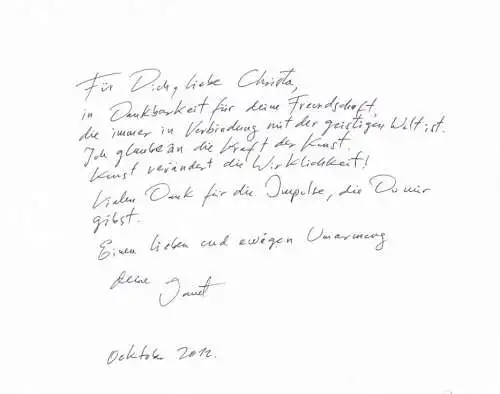 Für Dich, liebe Christa,
in Dankbarkeit für deine Freundschaft,
die immer in Verbindung mit der geistigen Welt ist.
Ich glaube an die Kraft der Kunst.
Kunst verändert die Wirklichkeit!
Vielen Dank für die Impulse, die Du mir
gibst.
Einen lieben und ewigen Umarmung
deine
Oektober 2012.